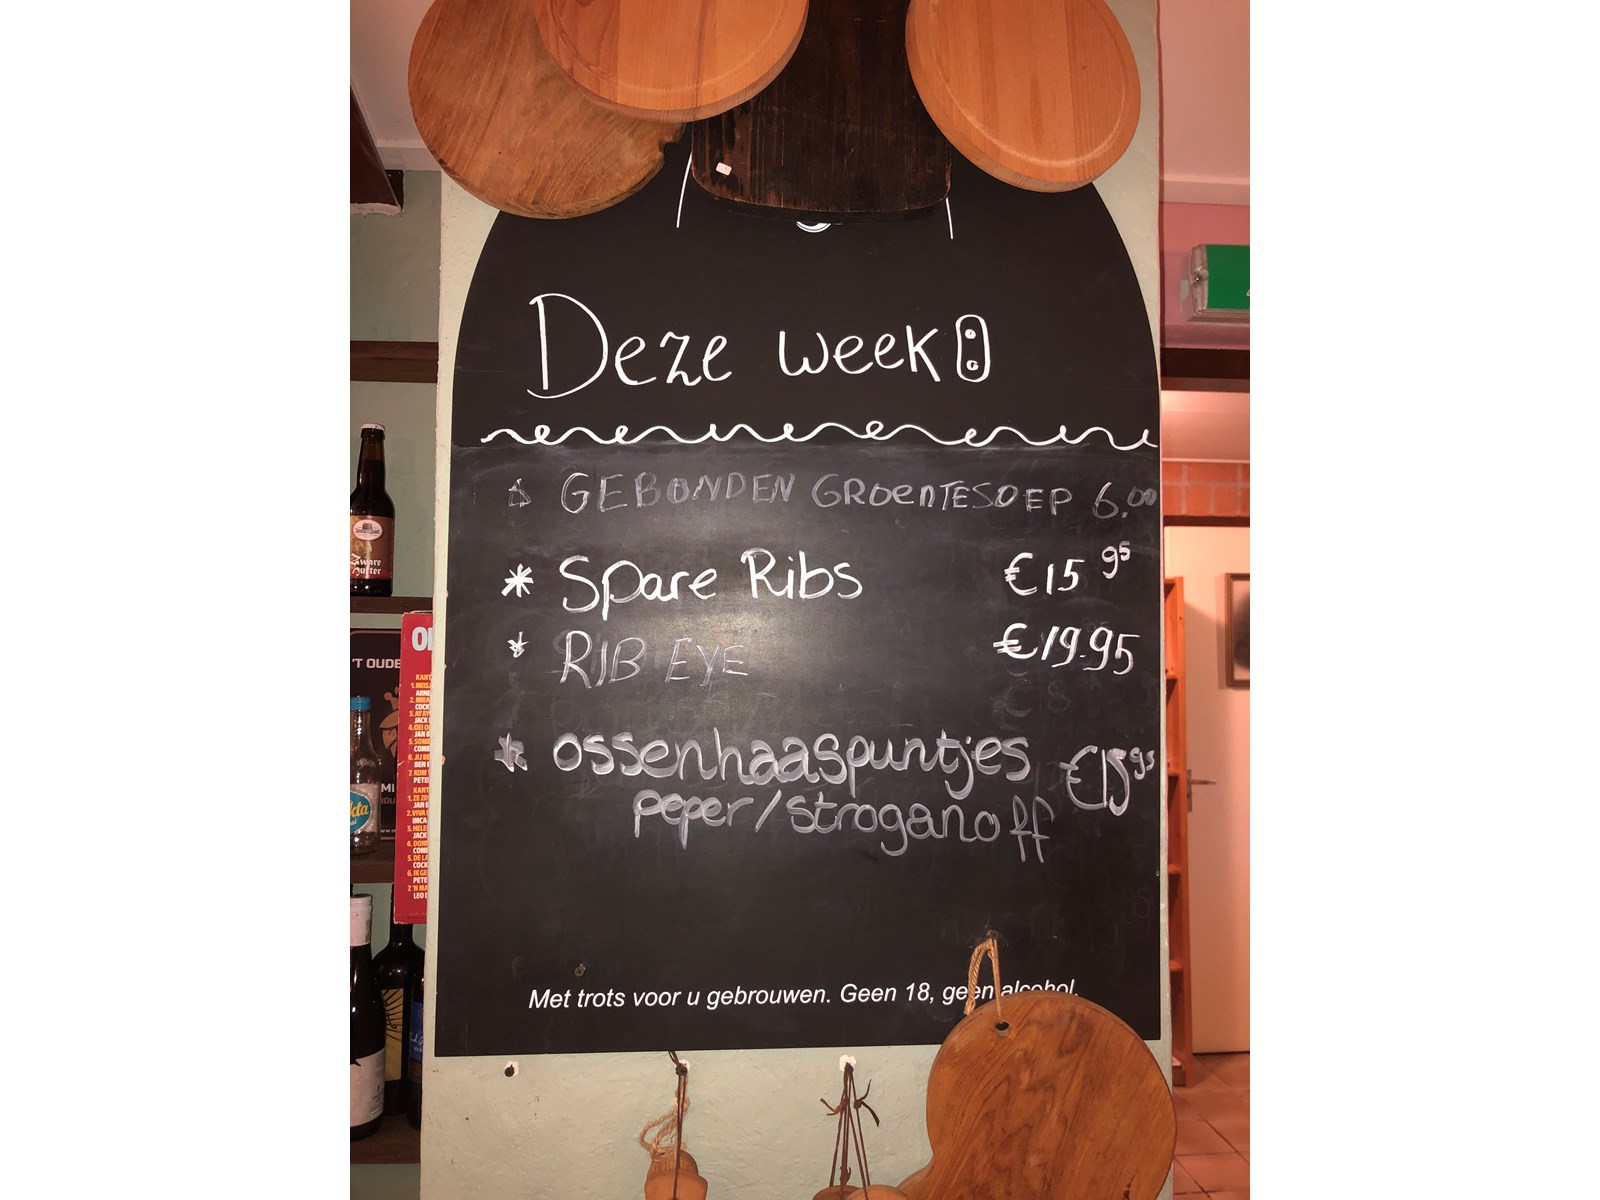 Deze week
GEBONDEN GROENTESOEP 6.00
* Spare Ribs €15 95
* RIB EYE €19.95
* ossenhaaspuntjes €15 95
peper/stroganoff
Met trots voor u gebrouwen. Geen 18, geen alcohol.
Zware
'T OUDE
KANT
1. MEISJ
ARNE
JACK
JAN B
PETE
LEO D